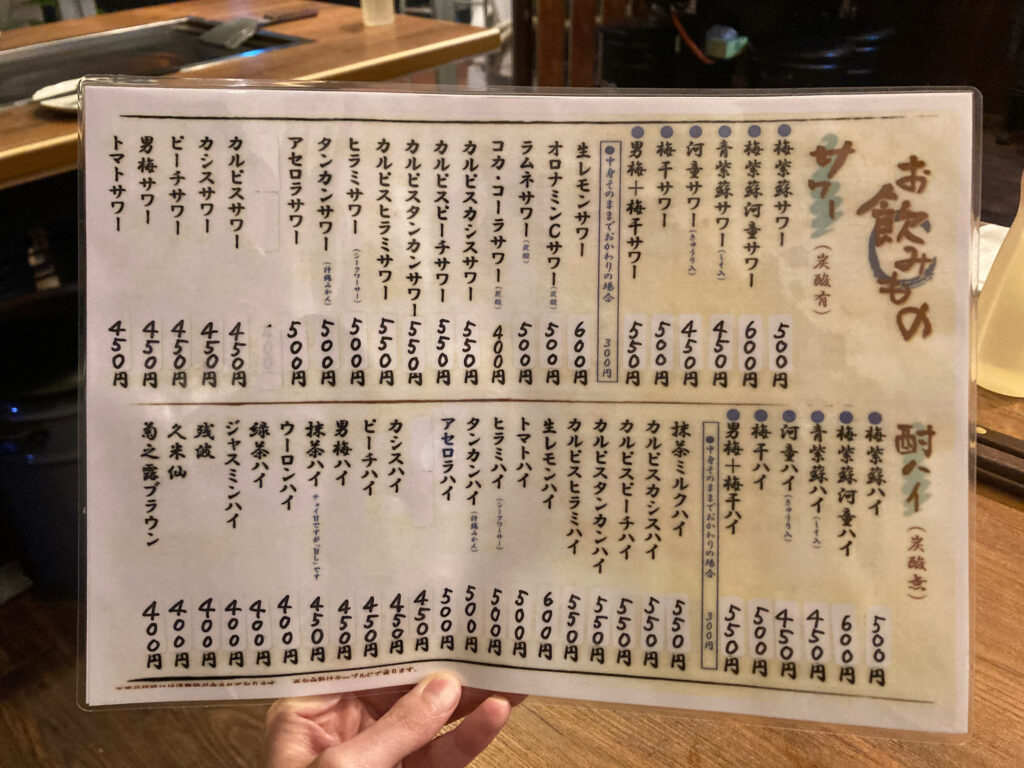 お飲みもの
サワー(炭酸有)
●梅紫蘇サワー 500円
●梅紫蘇河童サワー 600円
●青紫蘇サワー(しそ入) 450円
●河童サワー(きゅうり入) 450円
●梅干サワー 500円
●男梅+梅干サワー 550円
●中身そのままでおかわりの場合 300円
生レモンサワー 600円
オロナミンCサワー(炭酸) 500円
ラムネサワー(炭酸) 500円
コカ・コーラサワー(炭酸) 400円
カルピスカシスサワー 550円
カルピスピーチサワー 550円
カルピスタンカンサワー 550円
カルピスヒラミサワー 550円
ヒラミサワー(シークワーサー) 500円
タンカンサワー(沖縄みかん) 500円
アセロラサワー 500円
カルピスサワー 450円
カシスサワー 450円
ピーチサワー 450円
男梅サワー 450円
トマトサワー 450円
酎ハイ(炭酸無)
●梅紫蘇ハイ 500円
●梅紫蘇河童ハイ 600円
●青紫蘇ハイ(しそ入) 450円
●河童ハイ(きゅうり入) 450円
●梅干ハイ 500円
●男梅+梅干ハイ 550円
●中身そのままでおかわりの場合 300円
抹茶ミルクハイ 550円
カルピスカシスハイ 550円
カルピスピーチハイ 550円
カルピスタンカンハイ 550円
カルピスヒラミハイ 550円
生レモンハイ 600円
トマトハイ 500円
ヒラミハイ(シークワーサー) 500円
タンカンハイ(沖縄みかん) 500円
アセロラハイ 500円
450円
カシスハイ 450円
ピーチハイ 450円
男梅ハイ 450円
抹茶ハイ チョイ甘ですが「旨し」です 450円
ウーロンハイ 400円
緑茶ハイ 400円
ジャスミンハイ 400円
残波 400円
久米仙 400円
菊之露ブラウン 400円
※お会計はテーブルにて承ります。